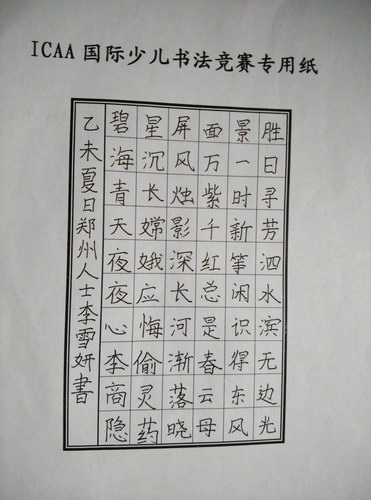 ICAA 国际少儿书法竞赛专用纸
胜日寻芳泗水滨无边光
景一时新等闲识得东风
面万紫千红总是春云母
屏风烛影深长河渐落晓
星沉长嫦娥应悔偷灵药
碧海青天夜夜心李商隐
乙未夏日郑州人士李雪妍書